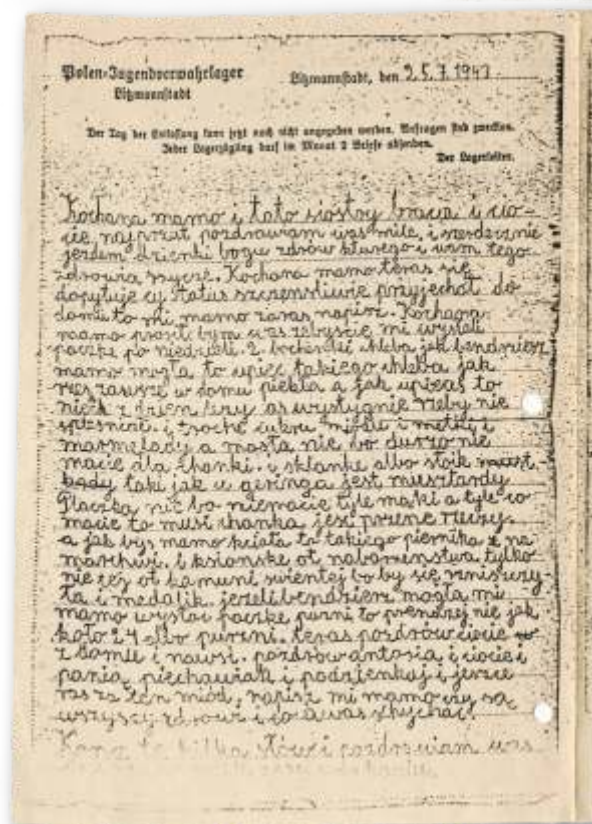 Polen-Jugendverwahrlager
Litzmannstadt
Litzmannstadt, den 25.7.1943
Der Tag der Entlassung kann jetzt noch nicht angegeben werden. Anfragen sind zwecklos.
Jeder Lagerzögling darf im Monat 2 Briefe absenden.
Der Lagerleiter.
Kochana mamo i tato siostry i cio-
cie najprzut pozdrawam was mile, i serdecznie
jezdem dzienki bogu zdrów kturego i wam tego
zdrowia rzyczė. Kochana mamo teras się
dopytuje cy tatus szczensliwie przyjechał do
domu to mi mamo zaras napisz. Kochana
mamo prosił bym was zebyscie mi wysłali
paczke po niedzieli. 2 bochenki chleba jak bendziesz
mamo mogła to upiec takiego chleba jak
zawsze w domu piekła a jak upieczs to
niech z dzien lezy as wystygnie rzeby nie
i troche cukru i metki i
marmelady a masła nie bo durzo nie
macie dla chanki. i sklanke albo stoik
taki jak u geringa jest musztardy
Placzka nic bo niemacie tyle maki a tyle co
macie to musi chanka jesi
a jak bys mamo kciała to takiego piernika z
marchwi. i ksionske ot nabozenstwa tylko
nie tej ot kamuni swientej bo by się zniszczy-
ła i medalik. jezeli bendziesz mogła mi
mamo wysłac paczke purzni to prendzej nie jak
koło 24 albo purzni. teras pozdrów ciocie
z domu i nawsi. pozdrów antosia i ciocie i
pania piechawiak i podzienkaj i jeszcze
ras za ten miód, napisz mi mamo czy są
wszyscy zdrowi i co u was słychac.
te kilka słówek pozdrawiam was